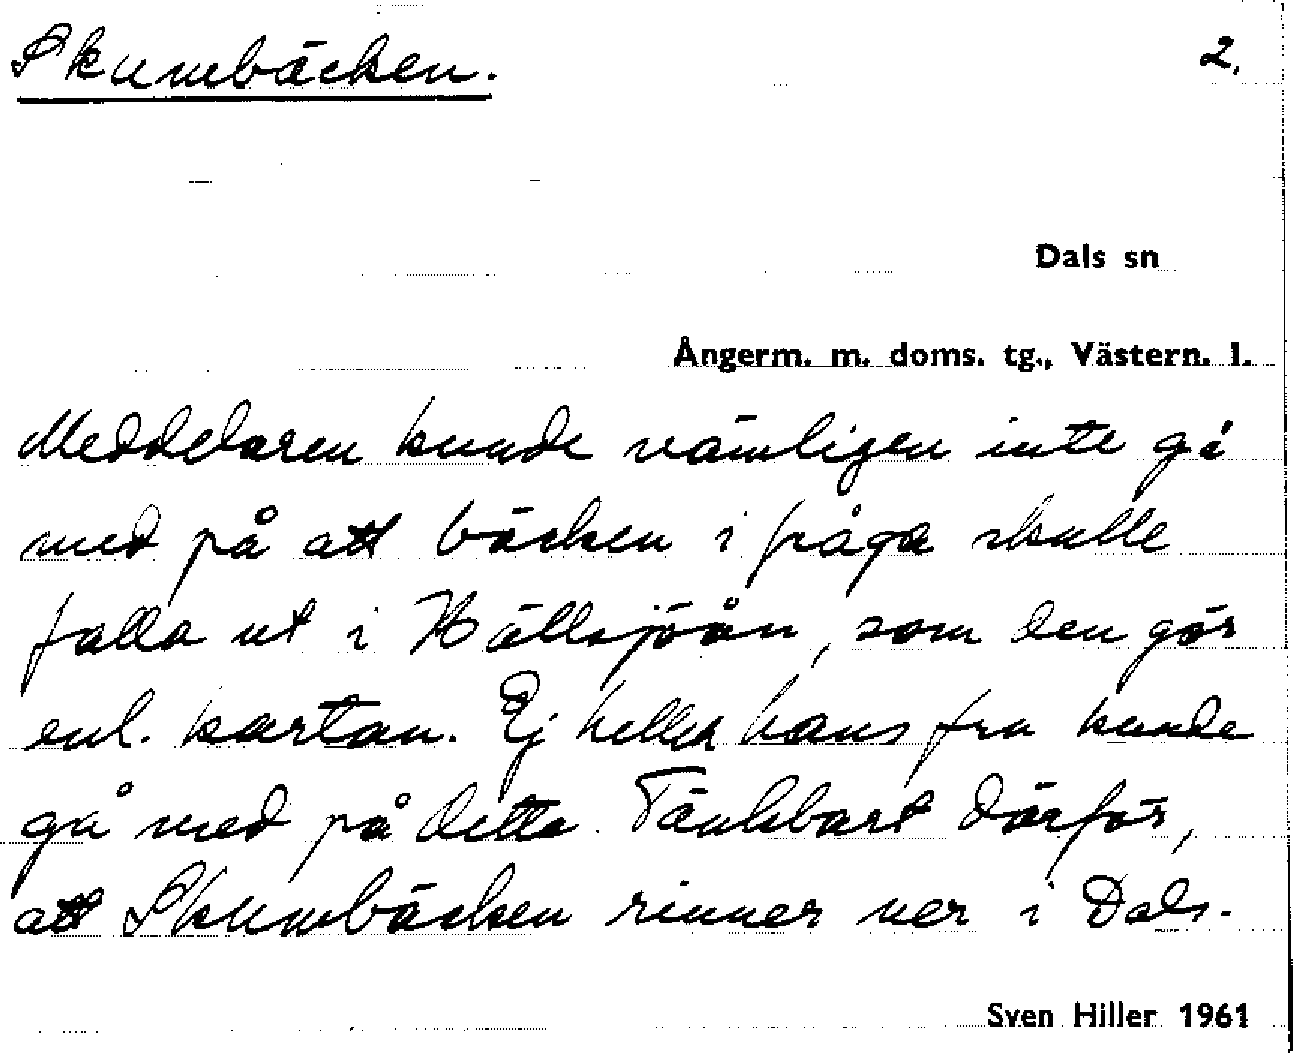 Skumbäcken. 2.
Dals sn
Ångerm. m. doms. tg., Västern. l.
Meddelaren kunde nämligen inte gå
med på att bäcken i fråga skulle
falla ut i Hällsjöån, som den gör
enl. kartan. Ej heller hans fru kunde
gå med på detta. Tänkbart därför,
att Skumbäcken rinner ner i Dals-
Sven Hiller 1961